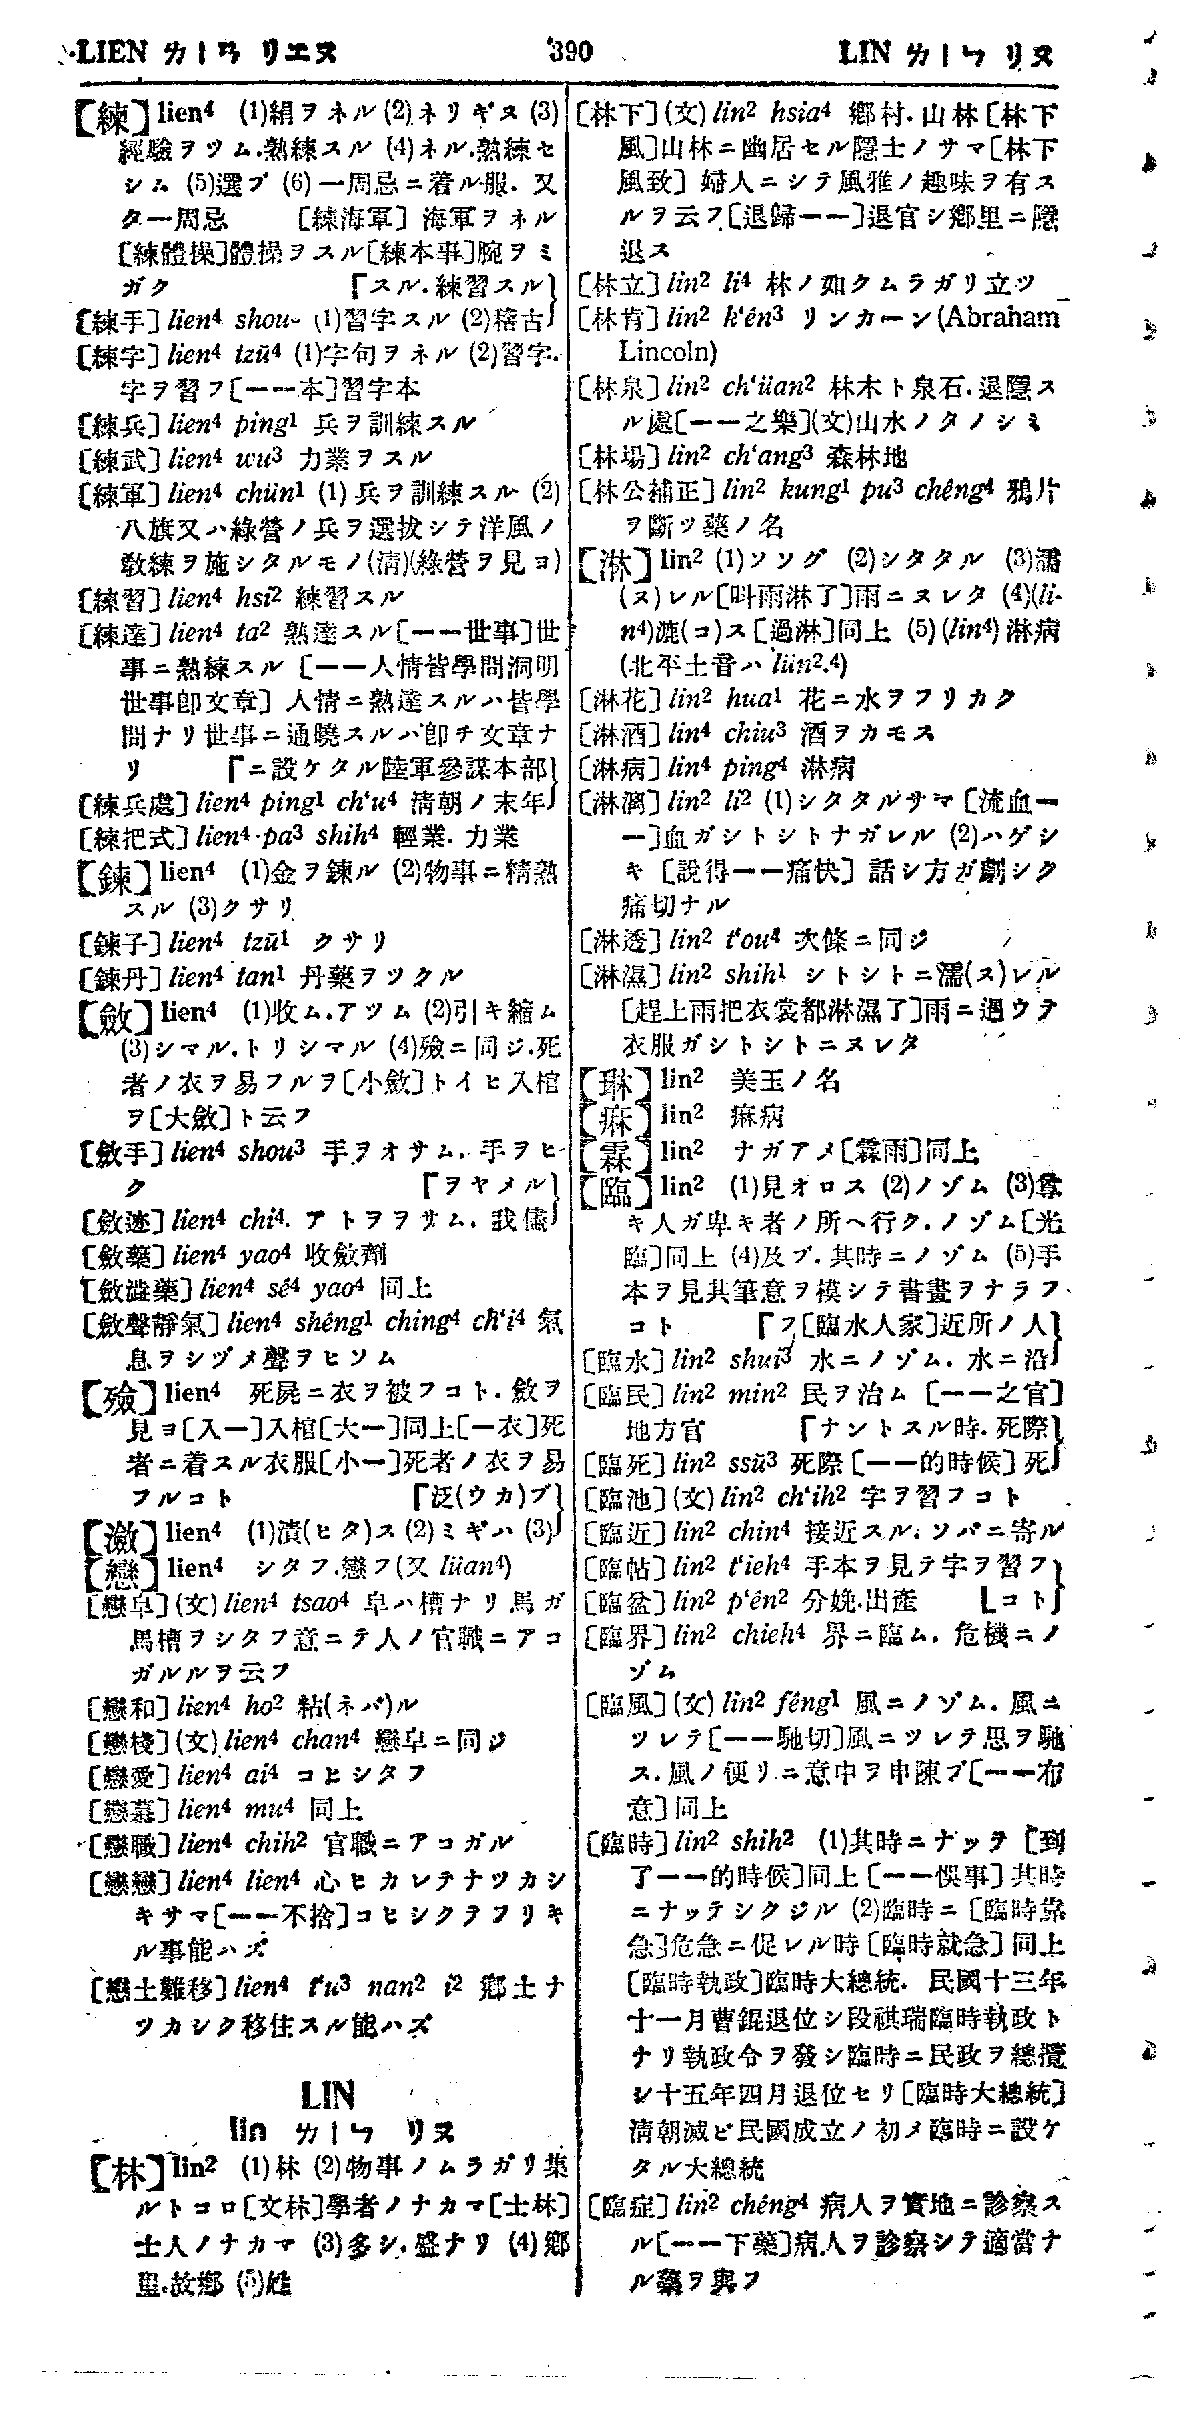 LIEN ㄌㄧㄢ リエヌ
390
LIN ㄌㄧㄣ リヌ
【練】lien4 (1)絹ヲネル (2)ネリギヌ (3)
經驗ヲツム.熟練スル (4)ネル.熟練セ
シム (5)選ブ (6)一周忌ニ着ル服. 又
タ一周忌 [練海軍] 海軍ヲネル
[練體操]體操ヲスル[練本事]腕ヲミ
ガク 『スル.練習スル}
[練手] lien4 shou (1)習字スル (2)稽古}
[練字] lien4 tzŭ4 (1)字句ヲネル (2)習字.
字ヲ習フ[一一本]習字本
[練兵] lien4 ping1 兵ヲ訓練スル
[練武] lien4 wu3 力業ヲスル
[練軍] lien4 chün1 (1) 兵ヲ訓練スル (2)
八旗又ハ綠營ノ兵ヲ選拔シテ洋風ノ
敎練ヲ施シタルモノ(清)(綠營ヲ見ヨ)
[練習] lien4 hsi2 練習スル
[練達] lien4 ta2 熟達スル[一一世事]世
事ニ熟練スル [一一人情皆學問洞明
世事卽文章] 人情ニ熟達スルハ皆學
問ナリ世事ニ通曉スルハ卽チ文章ナ
リ 『ニ設ケタル陸軍參謀本部}
[練兵處] lien4 ping1 ch‘u4 清朝ノ末年}
[練把式] lien4 pa3 shih4 輕業. 力業
【鍊】lien4 (1)金ヲ鍊ル (2)物事ニ精熟
スル (3)クサリ
[鍊子] lien4 tzŭ1 クサリ
[鍊丹] lien4 tan1 丹藥ヲツクル
【斂】lien4 (1)收ム.アツム (2)引キ縮ム
(3)シマル.トリシマル (4)殮ニ同ジ.死
者ノ衣ヲ易フルヲ[小斂]トイヒ入棺
ヲ[大斂]ト云フ
[斂手] lien4 shou3 手ヲオサム. 手ヲヒ
ク 『ヲヤメル}
[斂迹] lien4 chi4. アトヲヲサム. 我儘}
[斂藥] lien4 yao4 收斂劑
[斂澁藥] lien4 sê4 yao4 同上
[斂聲靜氣] lien4 shêng1 ching4 ch‘i4 氣
息ヲシヅメ聲ヲヒソム
【殮】lien4 死屍ニ衣ヲ被フコト. 斂ヲ
見ヨ[入一]入棺[大一]同上[一衣]死
者ニ着スル衣服[小一]死者ノ衣ヲ易
フルコト 『泛(ウカ)ブ}
【瀲】lien4 (1)漬(ヒタ)ス (2)ミギハ (3)}
【戀】lien4 シタフ.戀フ(又 lüan4)
[戀皁] (文) lien4 tsao4 皁ハ槽ナリ馬ガ
馬槽ヲシタフ意ニテ人ノ官職ニアコ
ガルルヲ云フ
[戀和] lien4 ho2 粘(ネバ)ル
[戀棧] (文) lien4 chan4 戀皁ニ同ジ
[戀愛] lien4 ai4 コヒシタフ
[戀慕] lien4 mu4 同上
[戀職] lien4 chih2 官職ニアコガル
[戀戀] lien4 lien4 心ヒカレテナツカシ
キサマ[一一不捨]コヒシクテフリキ
ル事能ハズ
[戀土難移] lien4 t‘u3 nan2 i2 鄕土ナ
ツカシク移住スル能ハズ
LIN
lin ㄌㄧㄣ リヌ
【林】lin2 (1)林 (2)物事ノムラガリ集
ルトコロ[文林]學者ノナカマ[士林]
士人ノナカマ (3)多シ.盛ナリ (4)鄕
里.故鄕 (5)姓
[林下] (文) lin2 hsia4 鄕村.山林[林下
風]山林ニ幽居セル隱士ノサマ[林下
風致] 婦人ニシテ風雅ノ趣味ヲ有ス
ルヲ云フ[退歸一一]退官シ鄕里ニ隱
退ス
[林立] lin2 li4 林ノ如クムラガリ立ツ
[林肯] lin2 k‘ên3 リンカーン(Abraham
Lincoln)
[林泉] lin2 ch‘üan2 林木ト泉石.退隱ス
ル處[一一之樂](文)山水ノタノシミ
[林場] lin2 ch‘ang3 森林地
[林公補正] lin2 kung1 pu3 chêng4 鴉片
ヲ斷ツ藥ノ名
【淋】lin2 (1)ソソグ (2)シタタル (3)濡
(ヌ)レル[叫雨淋了]雨ニヌレタ (4)(li-
n4)漉(コ)ス[過淋]同上 (5)(lin4)淋病
(北平土音ハ lün2.4)
[淋花] lin2 hua1 花ニ水ヲフリカク
[淋酒] lin4 chiu3 酒ヲカモス
[淋病] lin4 ping4 淋病
[淋漓] lin2 li2 (1)シタタルサマ[流血一
一]血ガシトシトナガレル (2)ハゲシ
キ [說得一一痛快] 話シ方ガ劇シク
痛切ナル
[淋透] lin2 t‘ou4 次條ニ同ジ
[淋濕] lin2 shih1 シトシトニ濡(ヌ)レル
[趕上雨把衣裳都淋濕了]雨ニ遇ウテ
衣服ガシトシトニヌレタ
【琳】lin2 美玉ノ名
【痳】lin2 痳病
【霖】lin2 ナガアメ[霖雨]同上
【臨】lin2 (1)見オロス (2)ノゾム (3)尊
キ人ガ卑キ者ノ所ヘ行ク.ノゾム[光
臨]同上 (4)及ブ.其時ニノゾム (5)手
本ヲ見其筆意ヲ模シテ書畫ヲナラフ
コト 『フ[臨水人家]近所ノ人}
[臨水] lin2 shui3 水ニノゾム. 水ニ沿}
[臨民] lin2 min2 民ヲ治ム [一一之官]
地方官 『ナントスル時.死際}
[臨死] lin2 ssŭ3 死際[一一的時候] 死}
[臨池] (文) lin2 ch‘ih2 字ヲ習フコト
[臨近] lin2 chin4 接近スル.ソバニ寄ル
[臨帖] lin2 t‘ieh4 手本ヲ見テ字ヲ習フ}
[臨盆] lin2 p‘ên2 分娩.出產 【コト}
[臨界] lin2 chieh4 界ニ臨ム. 危機ニノ
ゾム
[臨風] (文) lin2 fêng1 風ニノゾム. 風ニ
ツレテ[一一馳切]風ニツレテ思ヲ馳
ス.風ノ便リニ意中ヲ申陳ブ[一一布
意]同上
[臨時] lin2 shih2 (1)其時ニナッテ [到
了一一的時候]同上[一一悞事] 其時
ニナッテシクジル (2)臨時ニ [臨時靠
急]危急ニ促レル時[臨時就急] 同上
[臨時執政]臨時大總統. 民國十三年
十一月曹錕退位シ段祺瑞臨時執政ト
ナリ執政令ヲ發シ臨時ニ民政ヲ總攬
シ十五年四月退位セリ[臨時大總統]
清朝滅ビ民國成立ノ初メ臨時ニ設ケ
タル大總統
[臨症] lin2 chêng4 病人ヲ實地ニ診察ス
ル[一一下藥]病人ヲ診察シテ適當ナ
ル藥ヲ與フ